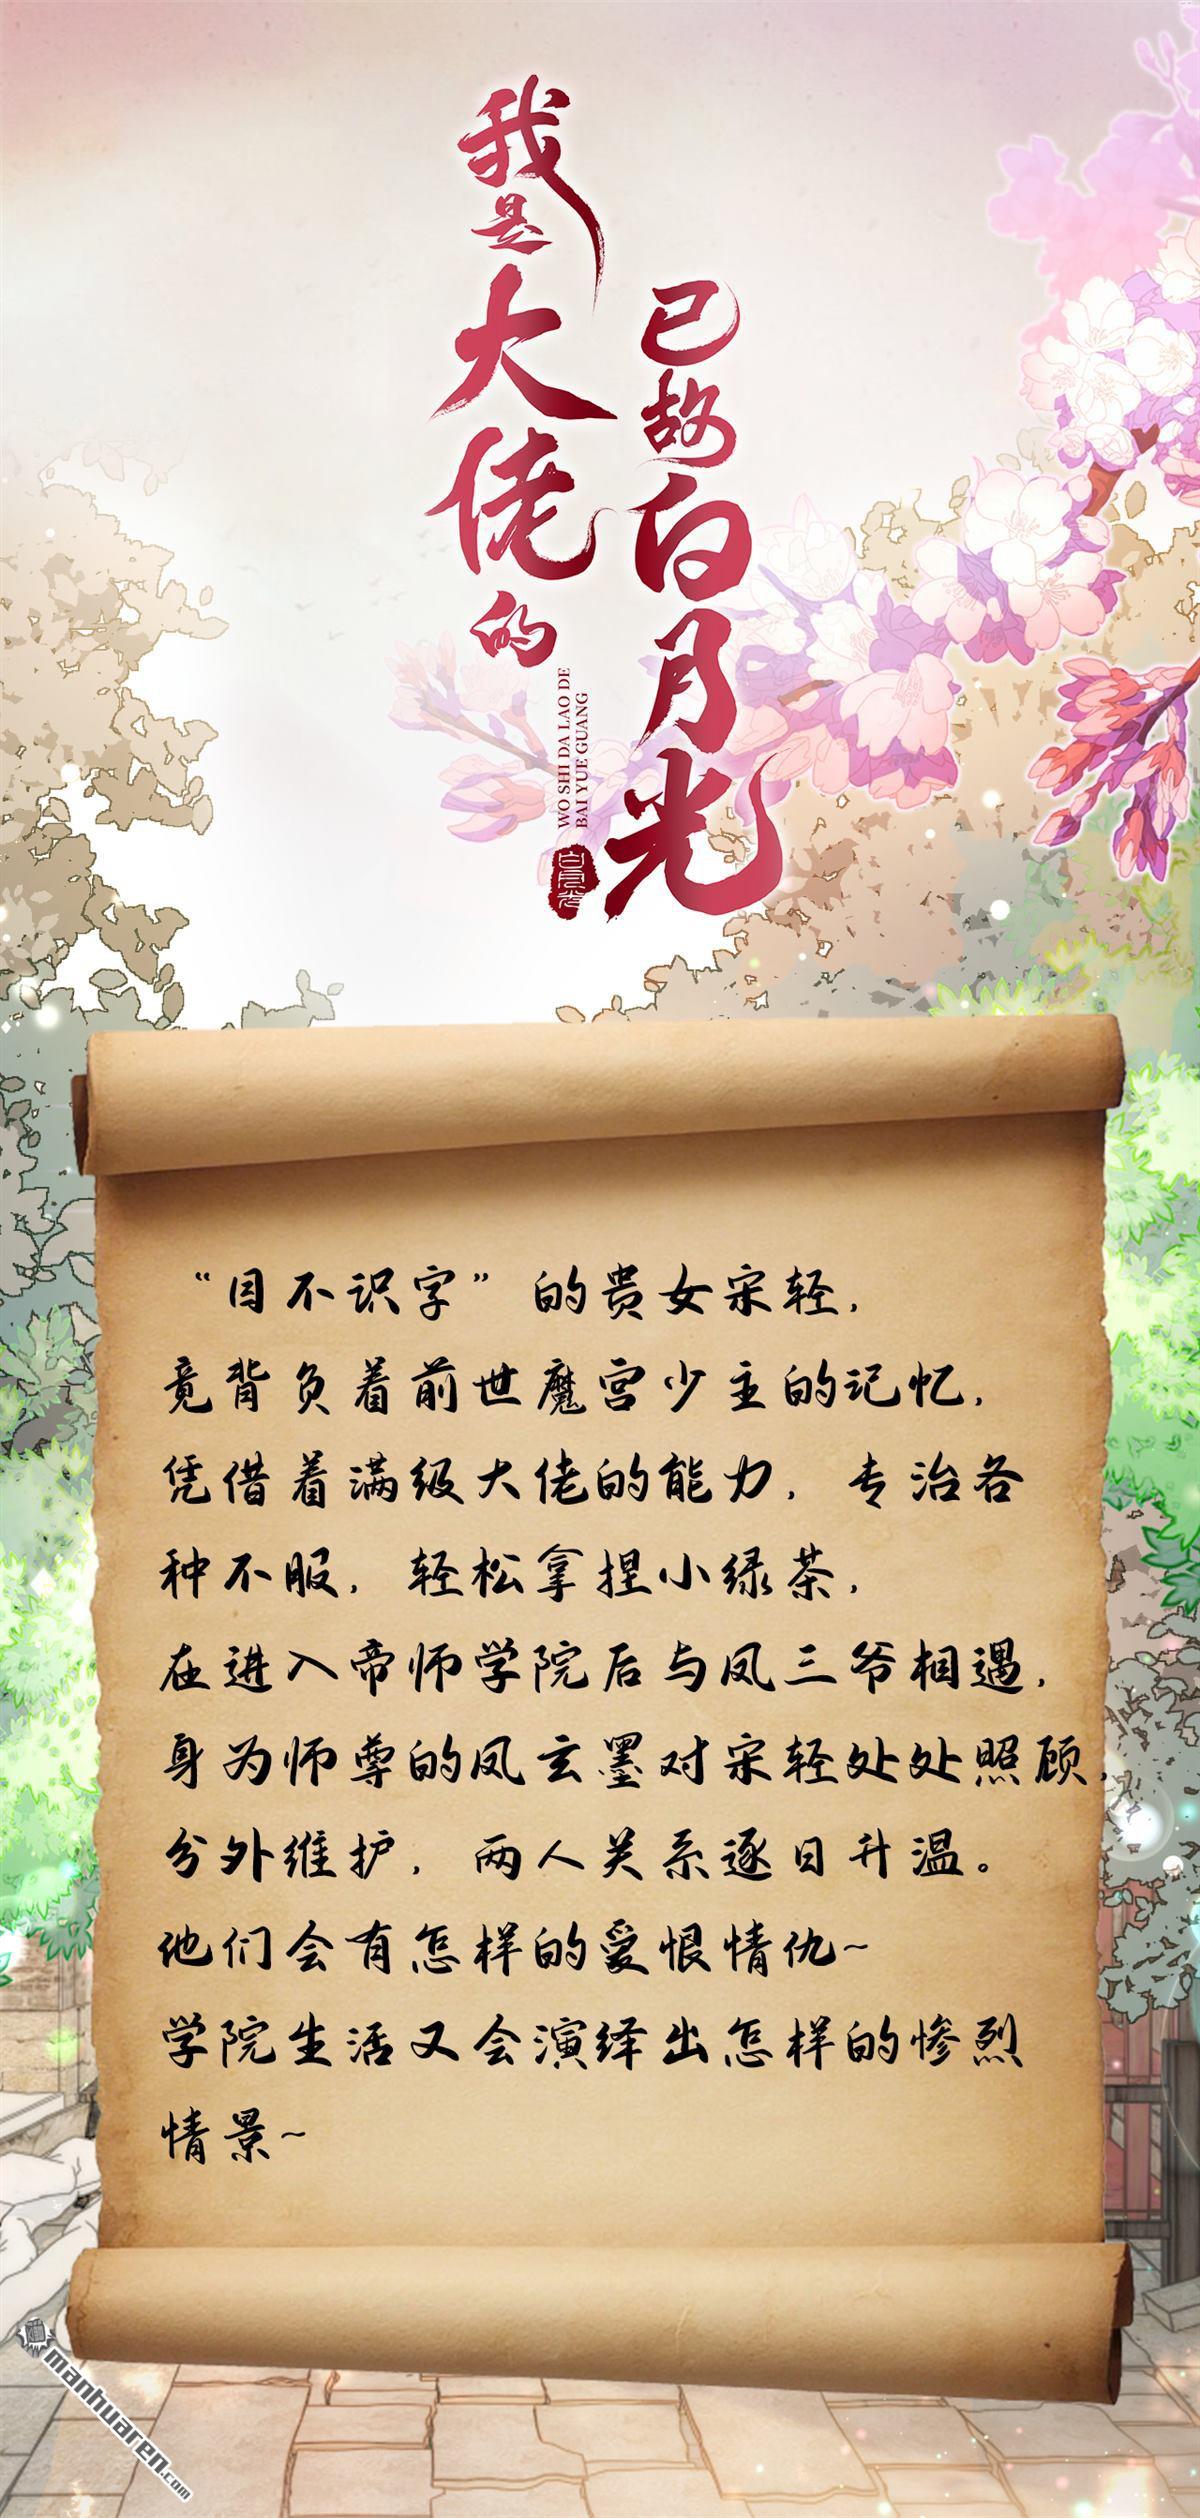 我是大佬的
已故白月光
WO SHI DA LAO DE
BAI YUE GUANG
白月光
“目不识字”的贵女宋轻，
竟背负着前世魔宫少主的记忆，
凭借着满级大佬的能力，专治各
种不服，轻松拿捏小绿茶，
在进入帝师学院后与凤三爷相遇，
身为师尊的凤玄墨对宋轻处处照顾，
分外维护，两人关系逐日升温。
他们会有怎样的爱恨情仇~
学院生活又会演绎出怎样的惨烈
情景~
manhuaren.com